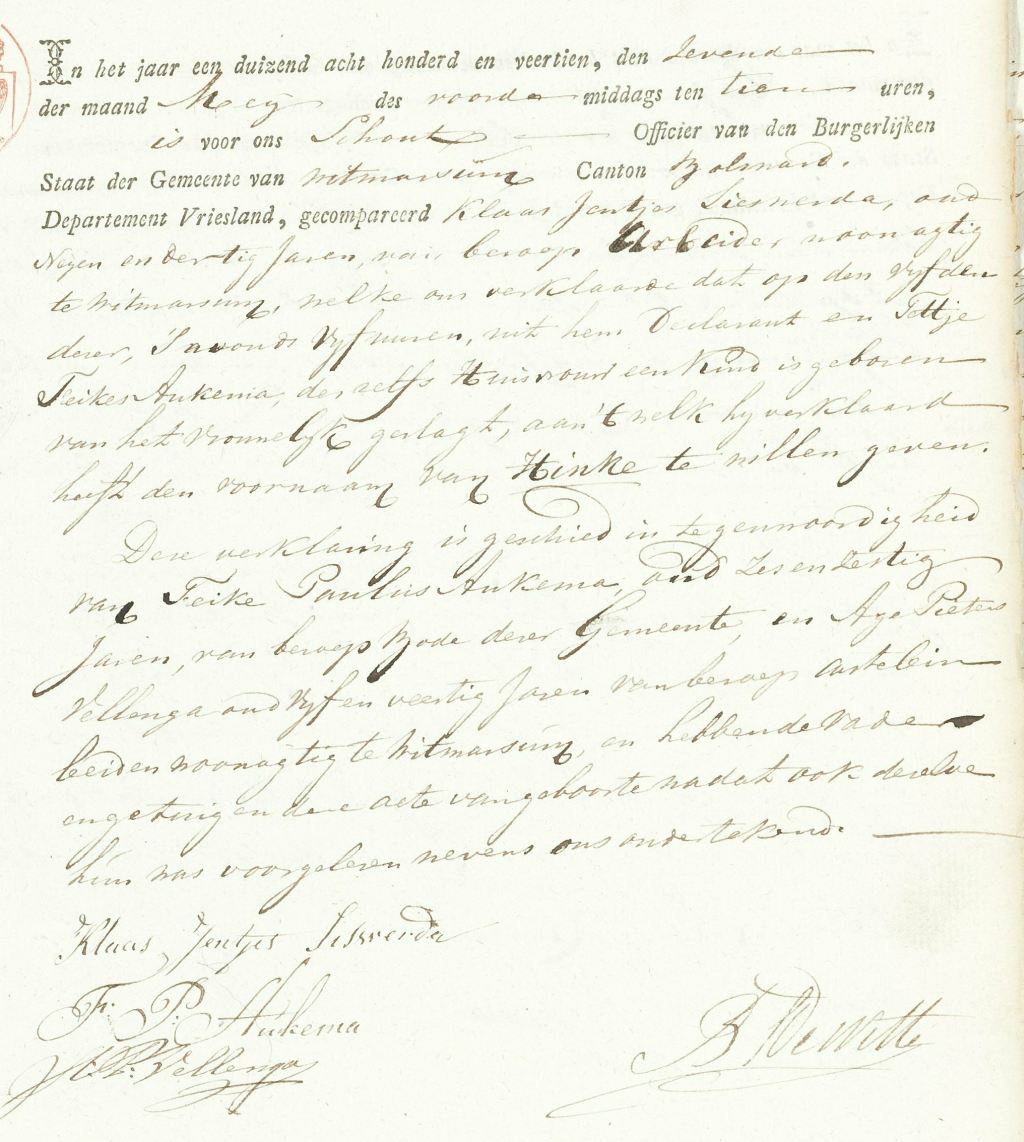 In het jaar een duizend acht honderd en veertien, den Zevende
der maand Mey des voorde middags ten tien uren,
is voor ons Schout Officier van den Burgerlijken
Staat der Gemeente van Witmarsum Canton Bolsward.
Departement Vriesland, gecompareerd Klaas Jentjes Sieswerda, oud
Negen en dertig Jaren, van beroep Arbeider woonagtig
te Witmarsum, welke ons verklaarde dat op den Vyfden
dezer, 's avonds Vyf uuren, uit hem Declarant en Tettje
Feikes Aukema, deszelfs Huisvrouw een Kind is geboren
van het vrouwelyk geslagt, aan 't welk hy verklaard
heeft den voornaam van Hinke te willen geven.
Deze verklaring is geschied in tegenwoordigheid
van Feike Paulus Aukema, oud Zes en Zestig
Jaren, van beroep Bode dezer Gemeente, en Age Pieters
Vellenga oud Vyf en veertig Jaren van beroep Castelein
beiden woonagtig te Witmarsum, en hebbende Vader
en getuigen deze acte van geboorte nadat ook dezelve
hun was voorgelezen nevens ons ondertekend.
Klaas Jentjes Sieswerda
F: P: Aukema
A: P: Vellenga
B De Witte